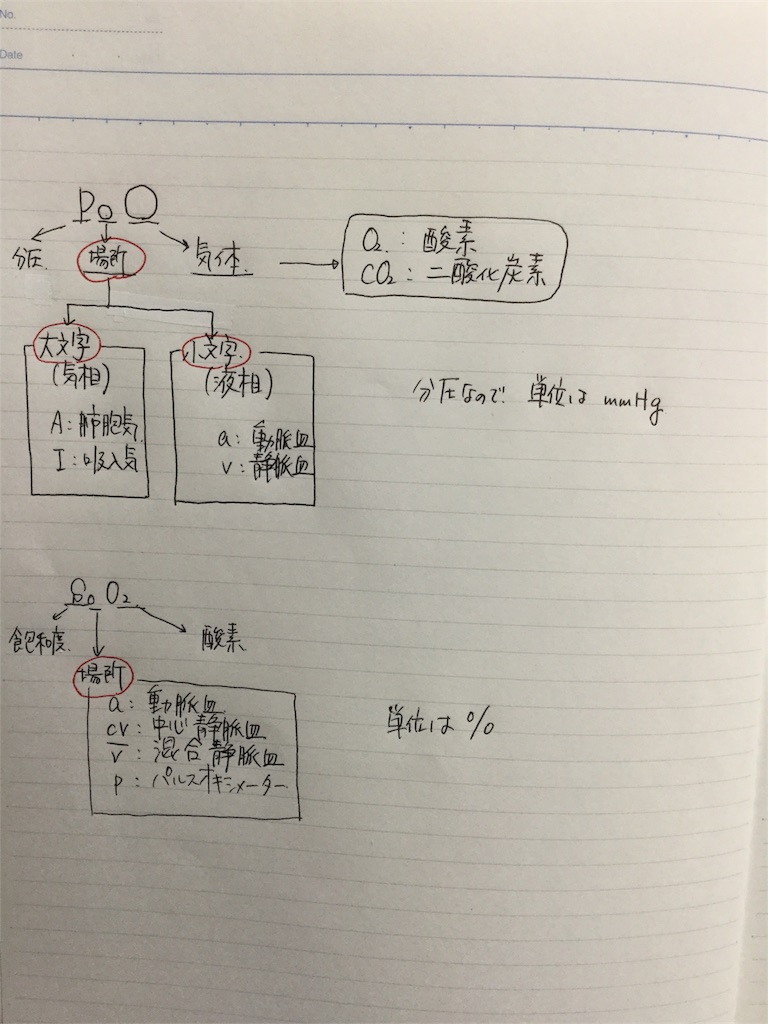 No.
Date
P○○
分圧 場所 気体
O₂:酸素
CO₂:二酸化炭素
大文字
(気相)
A:肺胞気
I:吸入気
小文字
(液相)
a:動脈血
v:静脈血
分圧なので 単位は mmHg
S○O₂
飽和度 場所 酸素
a:動脈血
cv:中心静脈血
v̅:混合静脈血
p:パルスオキシメーター
単位は %